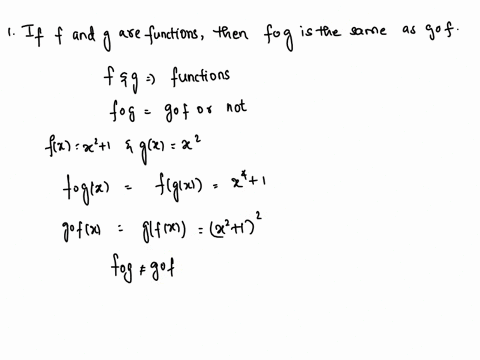 1. If f and g are functions, then fog is the same as gof.
f & g => functions
fog = gof or not
f(x) = x²+1 & g(x) = x²
fog(x) = f(g(x)) = x⁴+1
gof(x) = g(f(x)) = (x²+1)²
fog ≠ gof